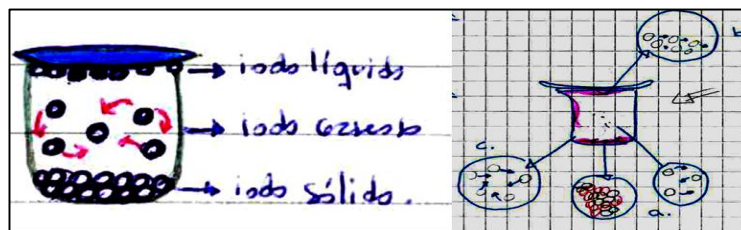 iodo líquido
iodo gaseoso
iodo sólido.
b
c.
a.